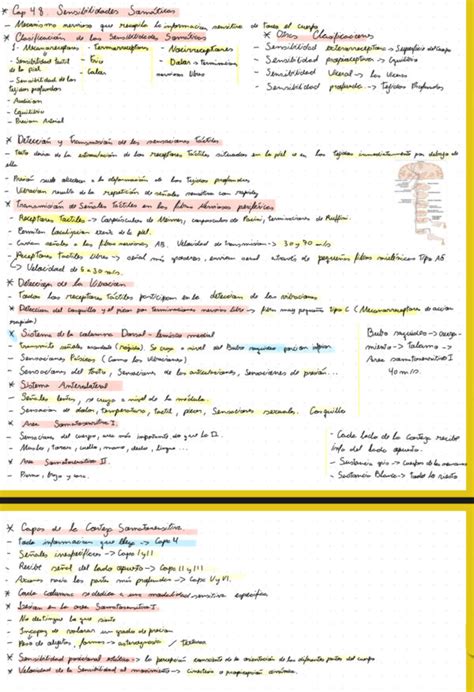 * Cap 48. Sensibilidades Somáticas
- Mecanismo nervioso que recopila la información sensitiva de todo el cuerpo
* Clasificación de las Sensibilidades Somáticas
* Otras Clasificaciones
1- Mecanorreceptores - Termorreceptores - Nocirreceptores
- Sensibilidad tactil de la piel - Frio - Dolor -> terminaciones nerviosas libres
- Calor
- Sensibilidad de los tejidos profundos
- Audicion
- Equilibrio
- Presion Arterial
- Sensibilidad exterorreceptora -> Superficie del cuerpo
- Sensibilidad propioceptiva -> Equilibrio
- Sensibilidad Viceral -> las viceras
- Sensibilidad profunda -> Tejidos Profundos
* Detección y Transmisión de las sensaciones Táctiles
- Tacto deriva de la estimulación de los receptores Táctiles situados en la piel o en los tejidos inmediatamente por debajo de ella
- Presión suele obedecer a la deformación de los Tejidos profundos
- Vibracion resulta de la repetición de señales sensitivas con rapidez
* Transmision de Señales Táctiles en las fibras nerviosas periféricas
- Receptores Tactiles -> Corpúsculos de Meissner, corpusculos de Pacini, terminaciones de Ruffini.
- Permiten localizacion exacta de la piel.
- Envian señales x las fibras nerviosas, AB. Velocidad de transmision -> 30 y 70 m/s
- Receptores tactiles libres -> señal más graderos, envian señal através de pequeñas fibras mielínicas Tipo Aδ
-> Velocidad de 5 a 30 m/s.
* Deteccion de la Vibracion
- Todos los receptores táctiles participan en la deteccion de las vibraciones
* Deteccion del cosquilleo y el picor por terminaciones nerviosas libres -> fibra muy pequeña tipo C (Mecanorreceptores de accion rapida)
* Sistema de la columna Dorsal - lemnisco medial
- Transmite señales mandala (rapida). Se cruza a nivel del Bulbo raquideo porcion inferior
- Sensaciones Fásicas (Como las vibraciones)
- Sensaciones del tacto, Sensaciones de las articulaciones, Sensaciones de presión...
Bulbo raquideo -> cruzamiento -> Talamo -> Area somatosensitiva I
40 m/s.
* Sistema Anterolateral
- Señales lentas, se cruza a nivel de la médula.
- Sensacion de dolor, temperatura, tactil, picor, Sensaciones sexuales. Cosquilleo
* Area Somatosensitiva I.
- Sensaciones del cuerpo, area más importante de que la II.
- Muslo, torax, cuello, mano, dedo, lengua...
* Area Somatosensitiva II.
- Pierna, brazo y cara.
- Cada lado de la Corteza recibe info del lado opuesto.
- Sustancia gris -> cuerpos de las neuronas
- Sustancia Blanca -> todo lo resto
* Capas de la Corteza Somatosensitiva
- toda informacion que llega -> Capa 4
- Señales inespecíficas -> Capa I y II
- Recibe señal del lado opuesto -> Capas II y III
- Axones hacia las partes más profundas -> Capas V y VI.
* Cada columna se dedica a una modalidad sensitiva especifica
* Lesion en la area Somatosensitiva I.
- No distingue lo que siente
- Incapaz de valorar un grado de presion
- Peso de objetos, formas -> astereognosia / Texturas
* Sensibilidad posicional estática -> la percepción consciente de la orientación de las diferentes partes del cuerpo
* Velocidad de la Sensibilidad al movimiento -> cinestesia o propiocepción dinámica.